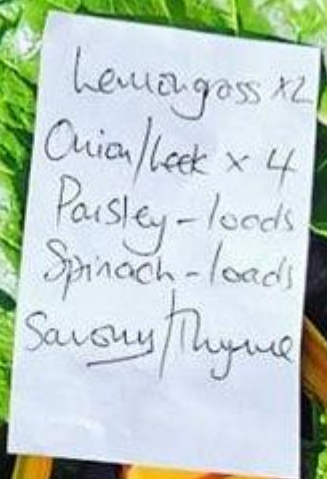 Lemongrass x2
Onion/Leek x 4
Parsley - loads
Spinach - loads
Savory/Thyme